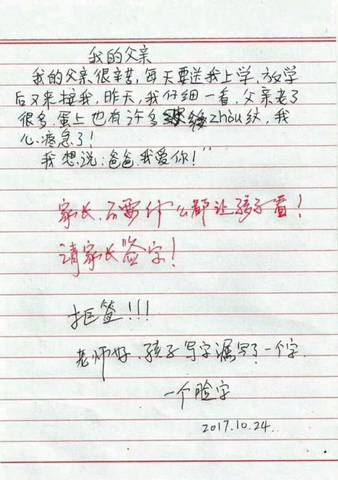 我的父亲
我的父亲很辛苦,每天要送我上学,放学
后又来接我,昨天,我仔细一看,父亲老了
很多,蛋上也有许多zhòu纹,我
心疼急了!
我想说:爸爸,我爱你!"
家长,不要什么都让孩子看!
请家长签字!
拒签!!!
老师好,孩子写字漏写了一个字
一个脸字
2017.10.24.